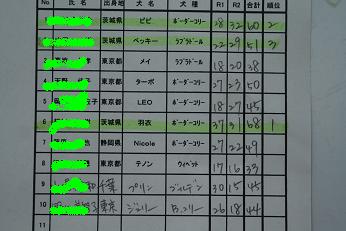 No 氏 名 出身地 犬 名 犬 種 R1 R2 合計 順位
茨城県 ピピ ボーダーコリー 28 32 60 2
茨城県 ベッキー ラブラドール 22 29 51 3
東京都 メイ ラブラドール 18 20 38
4 東京都 ターボ ボーダーコリー 27 23 50
5 子 東京都 LEO ボーダーコリー 18 27 45
6 茨城県 羽衣 ボーダーコリー 37 31 68 1
7 静岡県 Nicole ボーダーコリー 27 22 49
8 東京都 テノン ウィペット 17 16 33
9 千葉 プリン ゴールデン 30 15 45
10 東京 ジェリー B.コリー 26 18 44
11